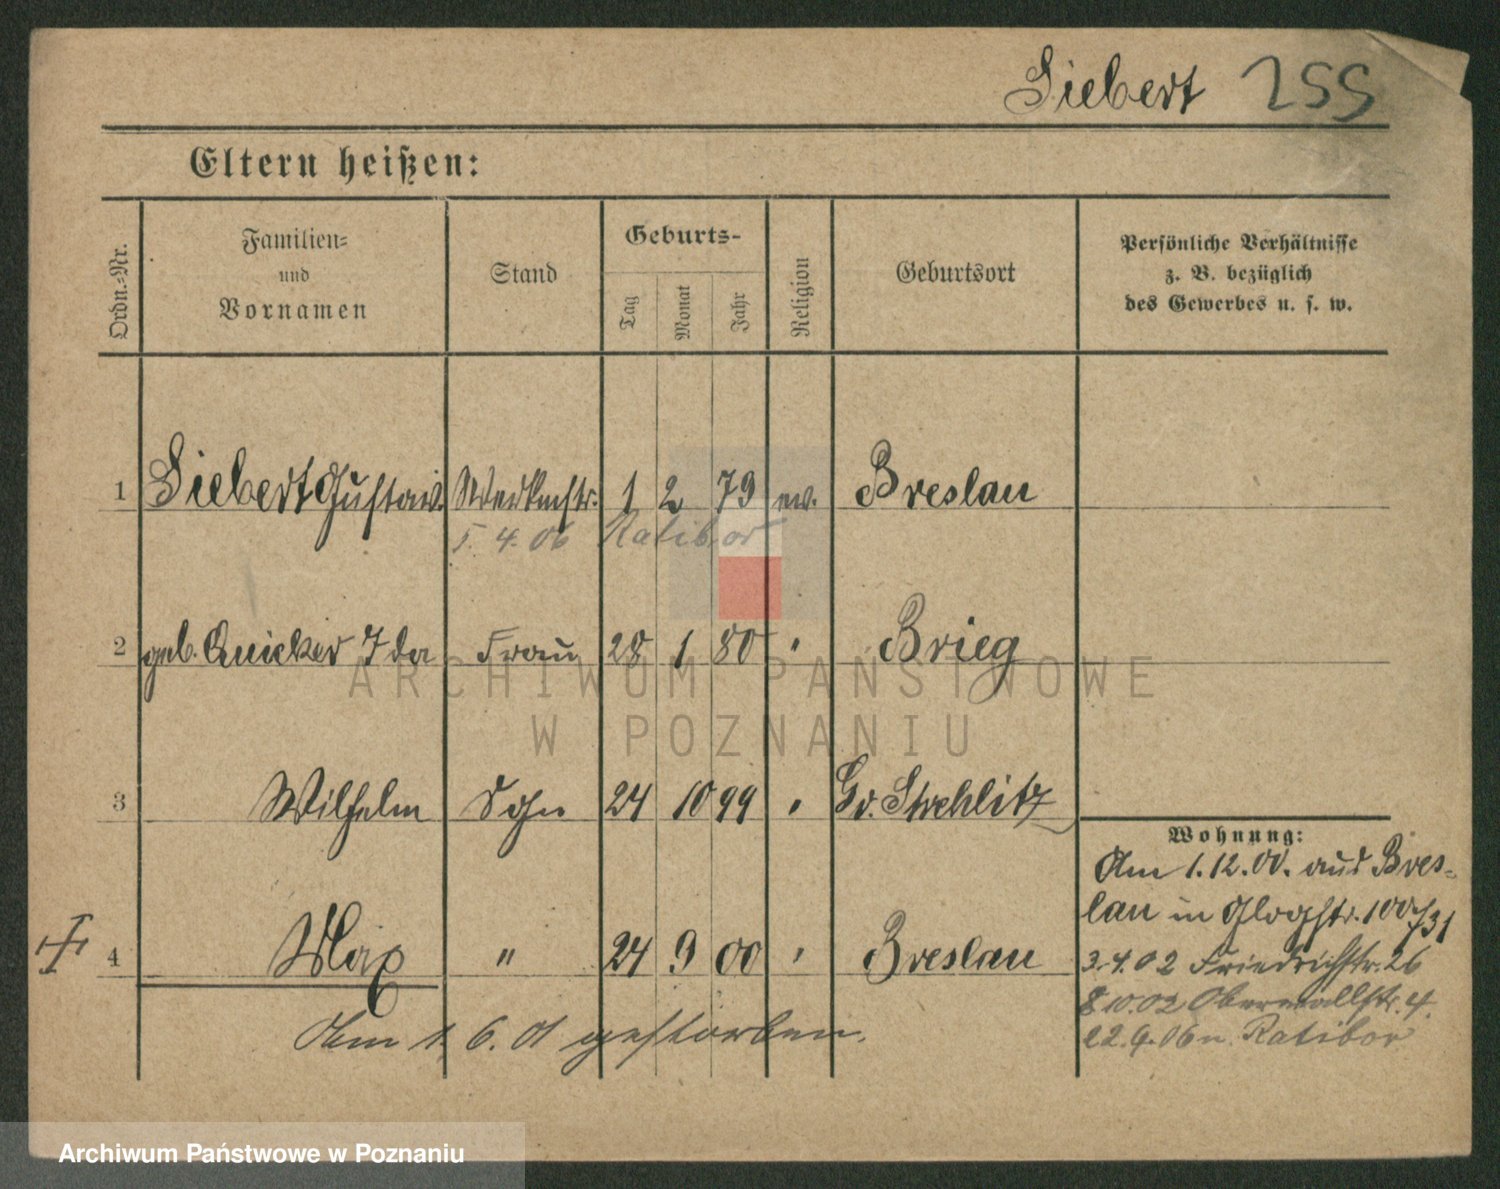 Siebert 255
Eltern heißen:
Ordn.-Nr.
Familien-
und
Vornamen
Stand
Geburts-
Tag
Monat
Jahr
Religion
Geburtsort
Persönliche Verhältnisse
z. B. bezüglich
des Gewerbes u. s. w.
1 Siebert Gustav. 1 2 79 ev. Breslau
5. 4. 06 Ratibor
2 geb. Quicker Ida Frau 28 1 80 " Brieg
ARCHIWUM PAŃSTWOWE
W POZNANIU
3 Wilhelm Sohn 24 10 99 " Gr. Strehlitz
4 Max " 24 9 00 " Breslau
Am 1. 6. 01 gestorben.
Wohnung:
Am 1.12.00. aus Bres-
lau in Glogstr. 100/31
3.4.02 Friedrichstr. 26
8.10.02 Oberwallstr. 4.
22.9.06 n. Ratibor
Archiwum Państwowe w Poznaniu